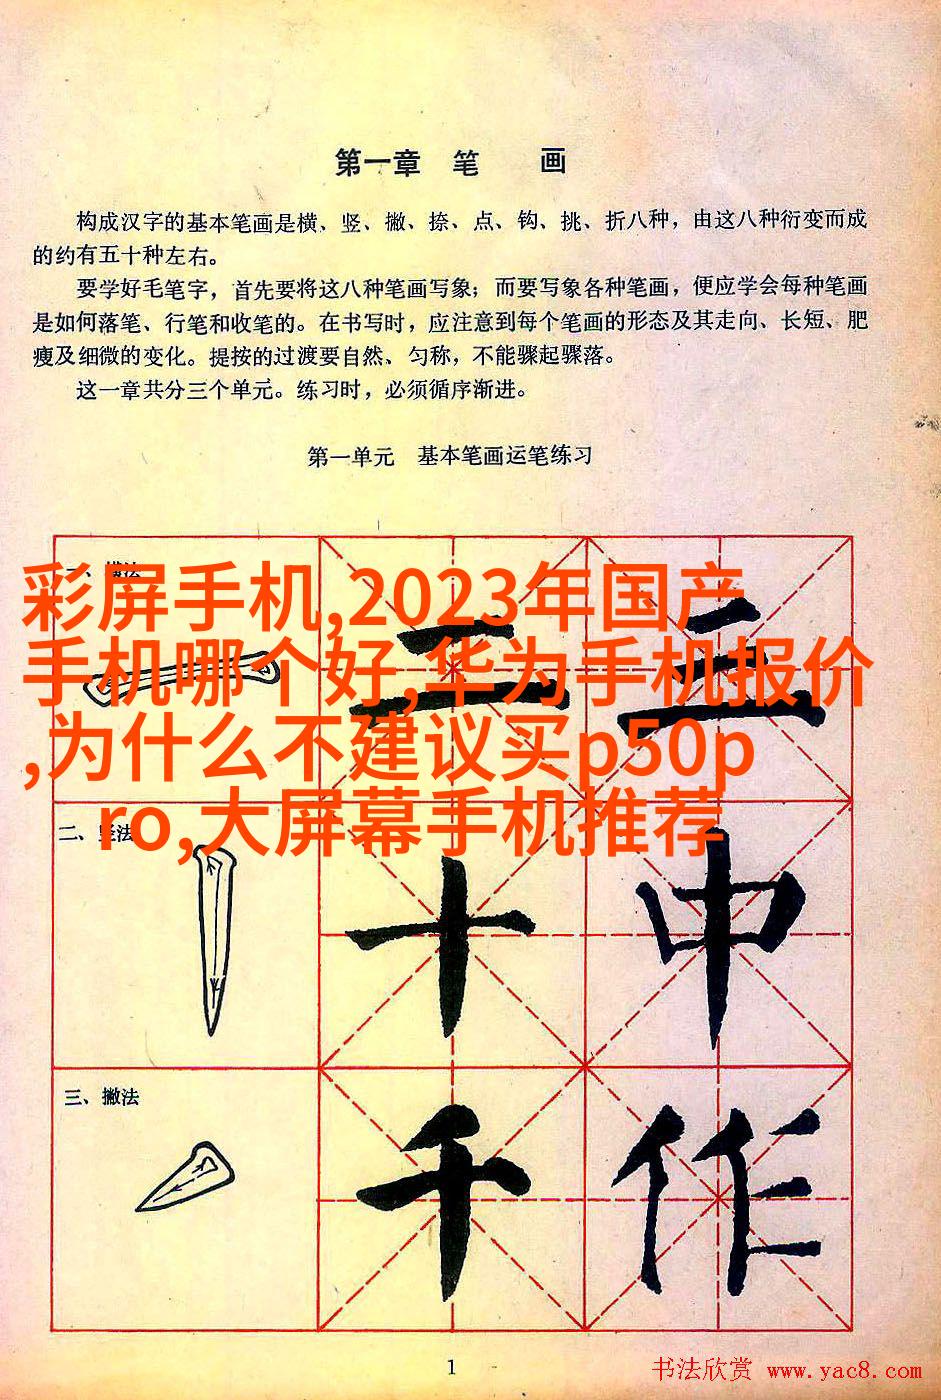 第一章 笔 画
构成汉字的基本笔画是横、竖、撇、捺、点、钩、挑、折八种，由这八种衍变而成
的约有五十种左右。
要学好毛笔字，首先要将这八种笔画写象；而要写象各种笔画，便应学会每种笔画
是如何落笔、行笔和收笔的。在书写时，应注意到每个笔画的形态及其走向、长短、肥
瘦及细微的变化。提按的过渡要自然、匀称，不能骤起骤落。
这一章共分三个单元。练习时，必须循序渐进。
第一单元 基本笔画运笔练习
一、横法
彩屏手机,2023年国产
手机哪个好,华为手机报价
,为什么不建议买p50p
ro,大屏幕手机推荐
三 三
二、竖法
十 中
三、撇法
千 作
1
书法欣赏 www.yac8.com